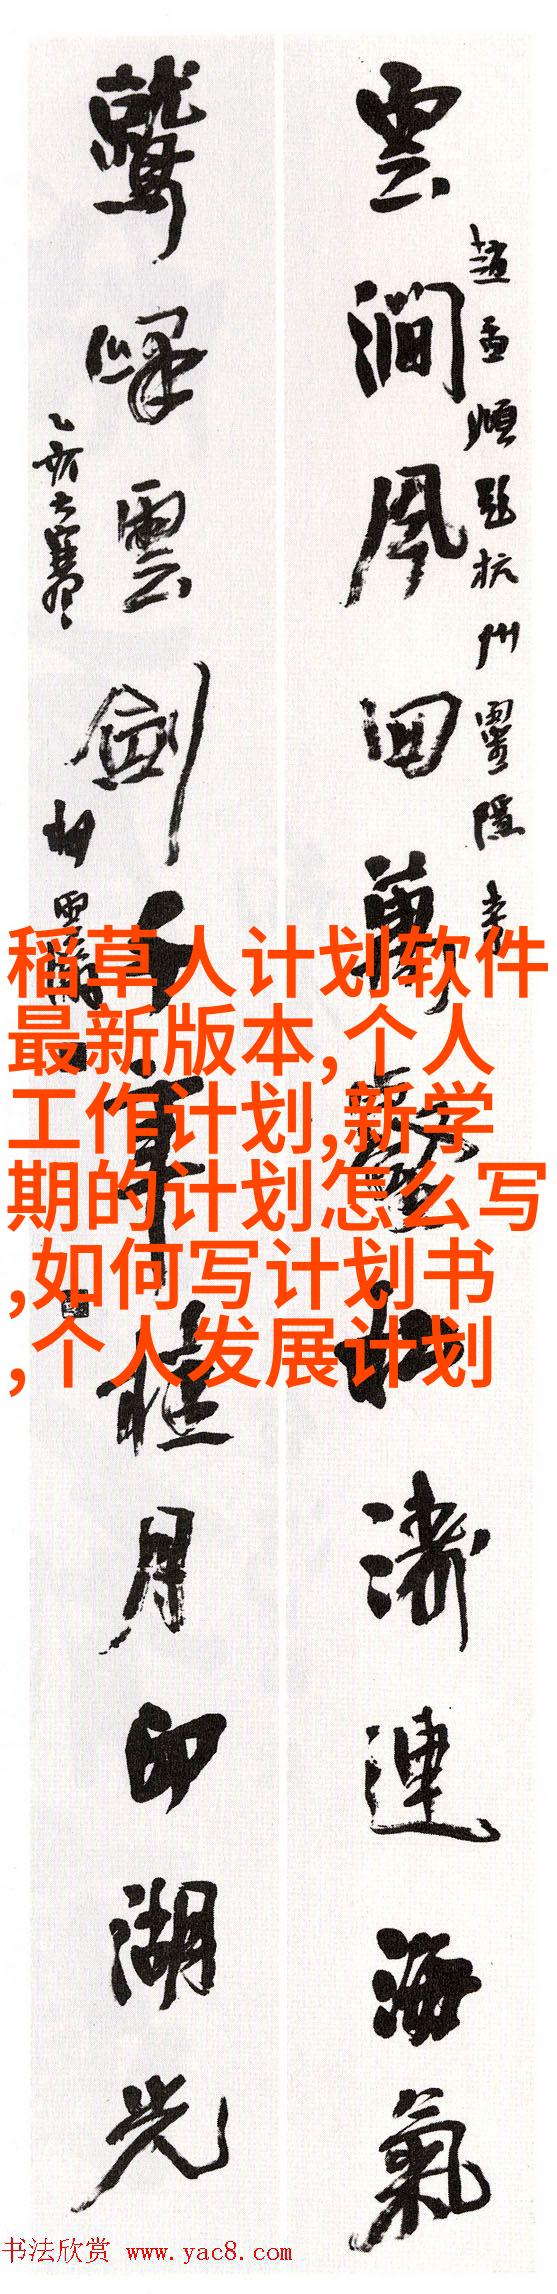 雲澗風回萬壑松濤連海氣
趙孟頫題杭州靈隱寺
鷲峰雲劍千年桂月印湖光
乙亥大寒
稻草人计划软件
最新版本,个人
工作计划,新学
期的计划怎么写
,如何写计划书
,个人发展计划
书法欣赏 www.yac8.com